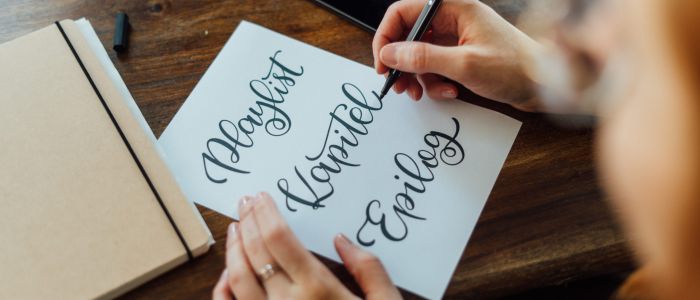 Playlist
Kapitel
Epilog